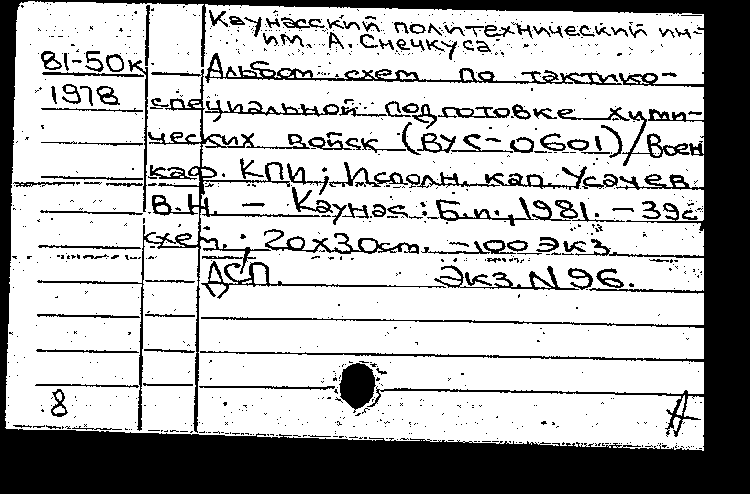 Каунасский политехнический ин-
им. А. Снечкуса
81-50к Альбом схем по тактико-
1978 специальной подготовке хими-
ческих войск (ВУС-0601)/Воен
каф. КПИ; Исполн. кап. Усачев
В.Н. – Каунас: Б.и., 1981. – 39с,
схем.; 20х30см. – 100 экз.
ДСП. Экз. N 96.
8 А